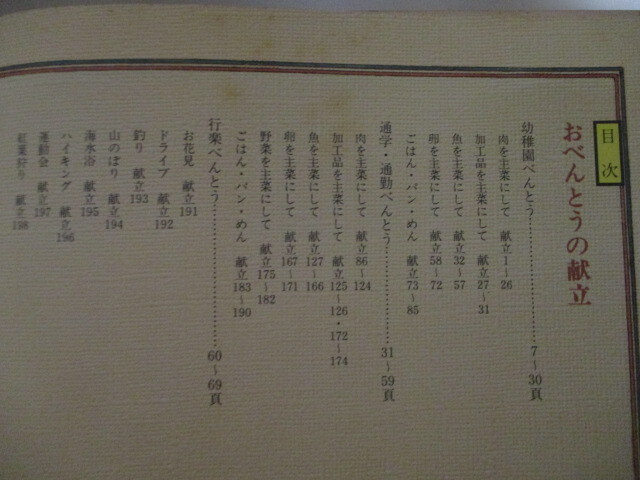 目次
おべんとうの献立
幼稚園べんとう……………………7～30頁
肉を主菜にして 献立1～26
加工品を主菜にして 献立27～31
魚を主菜にして 献立32～57
卵を主菜にして 献立58～72
ごはん・パン・めん 献立73～85
通学・通勤べんとう……………………31～59頁
肉を主菜にして 献立86～124
加工品を主菜にして 献立125～126・172～174
魚を主菜にして 献立127～166
卵を主菜にして 献立167～171
野菜を主菜にして 献立175～182
ごはん・パン・めん 献立183～190
行楽べんとう……………………60～69頁
お花見 献立191
ドライブ 献立192
釣り 献立193
山のぼり 献立194
海水浴 献立195
ハイキング 献立196
運動会 献立197
紅葉狩り 献立198